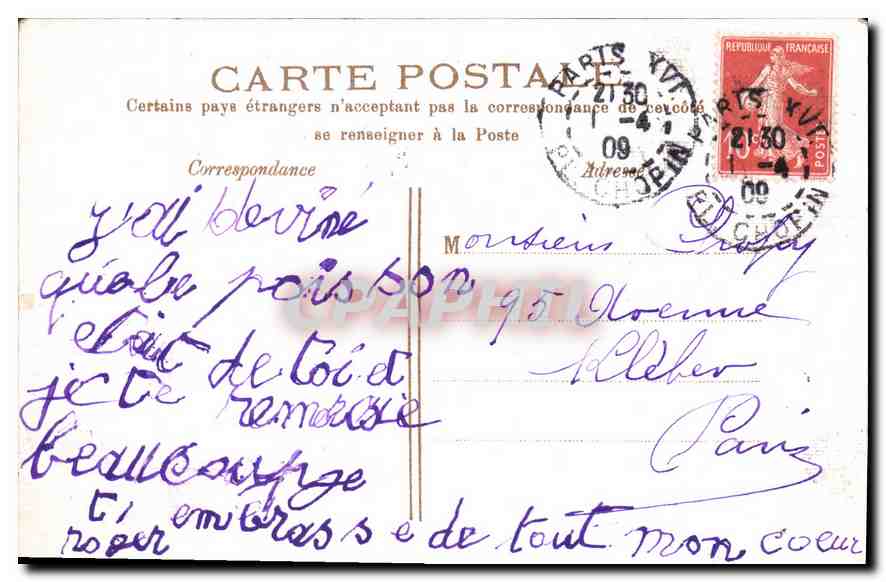 CARTE POSTALE
Certains pays étrangers n'acceptent pas la correspondance de ce côté
se renseigner à la Poste
Correspondance
Adresse
j'ai deviné
que le poisson
était de toi et
je te remercie
beaucoup je
t'embrasse de tout mon coeur
roger
Monsieur
95 Avenue
Kléber
Paris
REPUBLIQUE FRANÇAISE
10c
POSTES
PARIS XVI
21 30
1 -4
09
R. CHOPIN
PARIS XVI
21 30
1 -4
09
R. CHOPIN
CPAPHIL